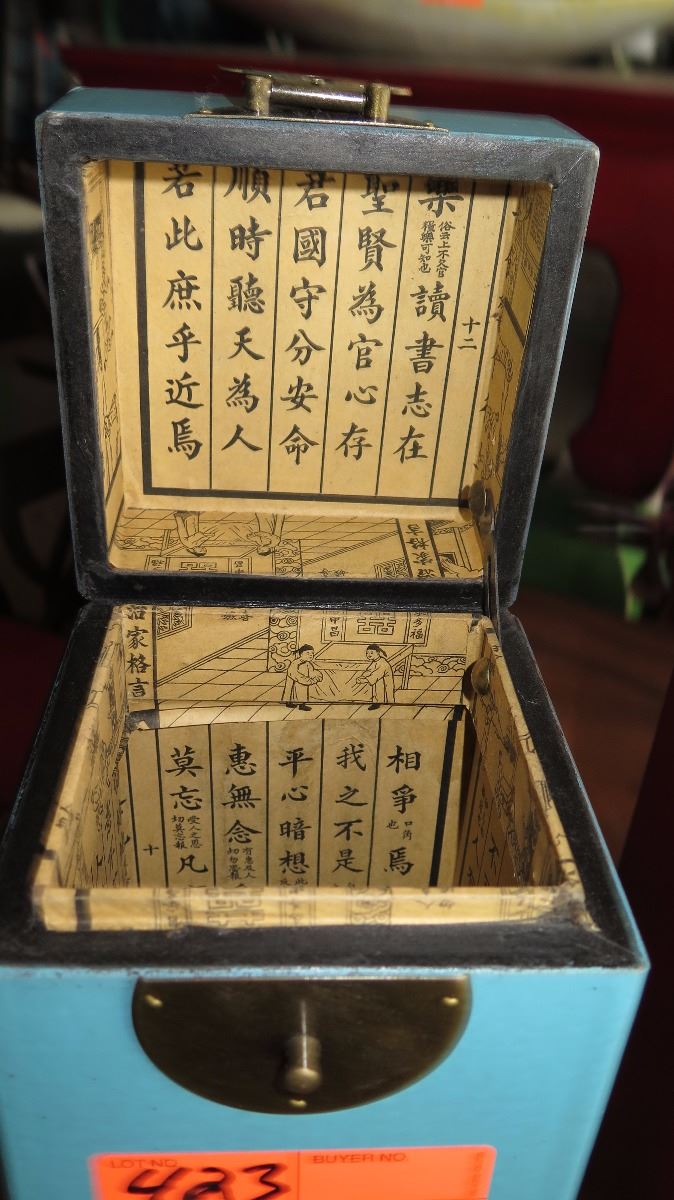 十二
樂俗云上不欠官糧樂可知也讀書志在
聖賢為官心存
君國守分安命
順時聽天為人
若此庶乎近焉
治家格言
多福
相爭口角也焉
我之不是
平心暗想
惠無念
莫忘受人之恩切莫忘報凡
十
LOT NO.
423
BUYER NO.